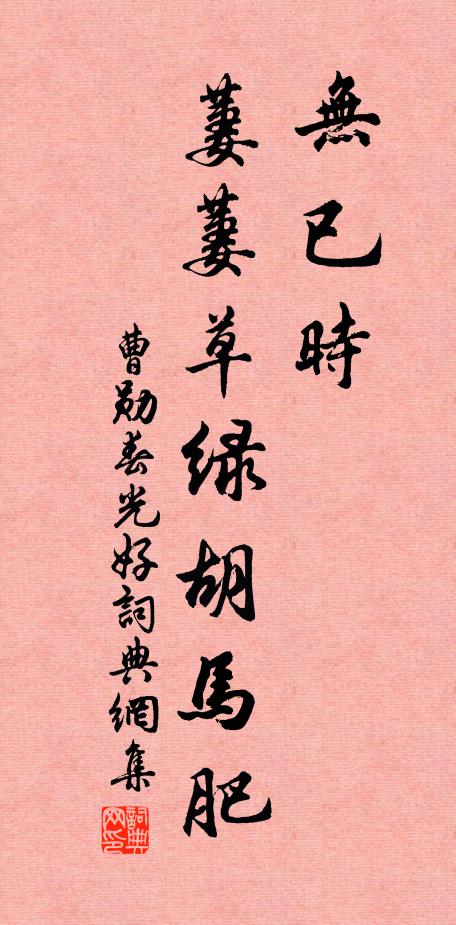 無已時
萋萋草緑胡馬肥
曹勛春光好詞典網集
詞典网印